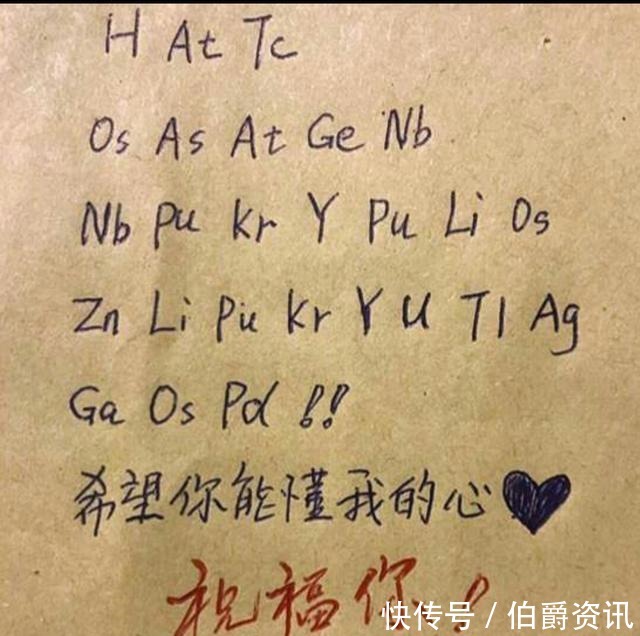 H At Tc
Os As At Ge Nb
Nb Pu Kr Y Pu Li Os
Zn Li Pu Kr Y U Tl Ag
Ga Os Pd !!
希望你能懂我的心♥
祝福你!
快传号/伯爵资讯